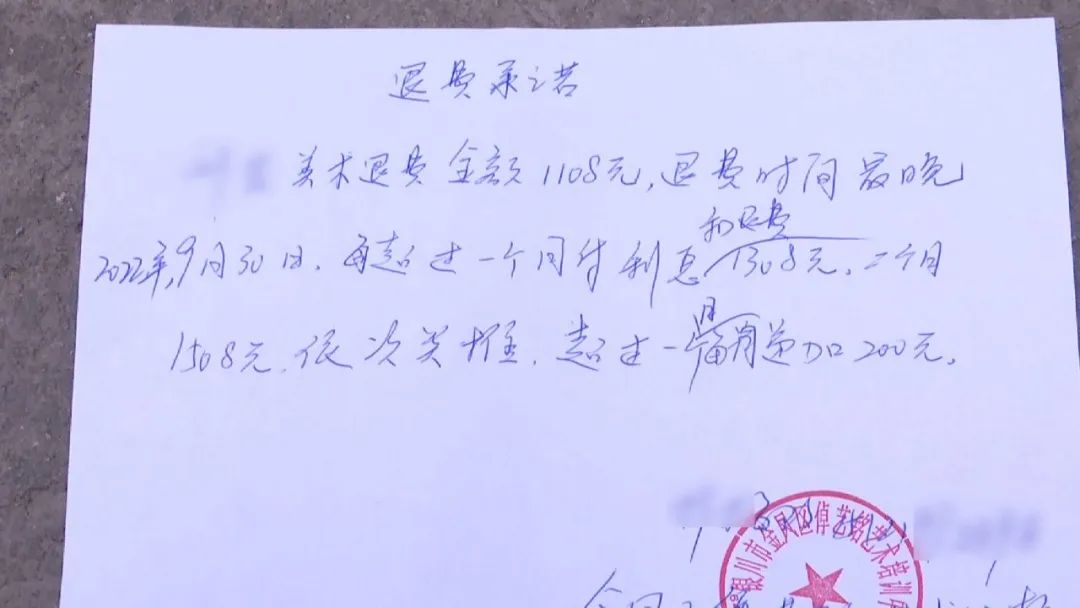 退费承诺
美术退费金额1108元,退费时间最晚
和退费
2022年,9月30日.每超过一个月付利息1308元.二个月
月
1508元.依次类推.超过一个月递加200元.
银川市金凤区倬艺铭艺术培训